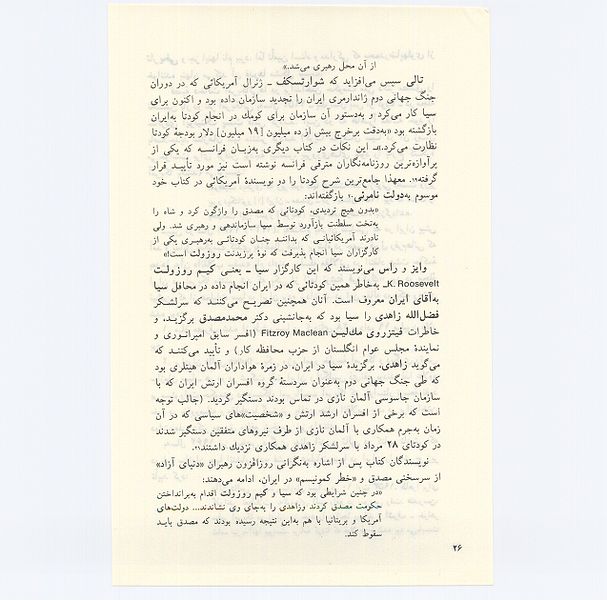 از آن محل رهبری می‌شد.»
تالی سپس می‌افزاید که شوارتسکف ــ ژنرال آمریکائی که در دوران
جنگ جهانی دوم ژاندارمری ایران را تجدید سازمان داده بود و اکنون برای
سیا کار می‌کرد و به‌دستور آن سازمان برای کومك در انجام کودتا به‌ایران
بازگشته بود «به‌دقت برخرج بیش از ده میلیون [۱۹ میلیون] دلار بودجهٔ کودتا
نظارت می‌کرد.»ــ این نکات در کتاب دیگری به‌زبان فرانسه که یکی از
پرآوازه‌ترین روزنامه‌نگاران مترقی فرانسه نوشته است نیز مورد تأیید قرار
گرفته. معهذا جامع‌ترین شرح کودتا را دو نویسندهٔ آمریکائی در کتاب خود
موسوم به‌دولت نامرئی بازگفته‌اند:
«بدون هیچ تردیدی، کودتائی که مصدق را واژگون کرد و شاه را
به‌تخت سلطنت بازآورد توسط سیا سازماندهی و رهبری شد. ولی
نادرند آمریکائیانی که بدانند چنان کودتائی به‌رهبری یکی از
کارگزاران سیا انجام پذیرفت که نوهٔ پرزیدنت روزولت است!»
وایز و راس می‌نویسند که این کارگزار سیا ــ یعنی کیم روزولت
K. Roosevelt‏ــ به‌خاطر همین کودتائی که در ایران انجام داده در محافل سیا
به‌آقای ایران معروف است. آنان همچنین تصریح می‌کنند که سرلشکر
فضل‌الله زاهدی را سیا بود که به‌جانشینی دکتر محمدمصدق برگزید، و
خاطرات فیتزروی مك‌لین Fitzroy Maclean (افسر سابق امپراتوری و
نمایندهٔ مجلس عوام انگلستان از حزب محافظه کار) و تأیید می‌کنند که
می‌گوید زاهدی، برگزیدهٔ سیا در ایران، در زمرهٔ هواداران آلمان هیتلری بود
که طی جنگ جهانی دوم به‌عنوان سردستهٔ گروه افسران ارتش ایران که با
سازمان جاسوسی آلمان نازی در تماس بودند دستگیر گردید. (جالب توجه
است که برخی از افسران ارشد ارتش و «شخصیت»های سیاسی که در آن
زمان به‌جرم همکاری با آلمان نازی از طرف نیروهای متفقین دستگیر شدند
در کودتای ۲۸ مرداد با سرلشکر زاهدی همکاری نزدیك داشتند.
نویسندگان کتاب پس از اشاره به‌نگرانی روزافزون رهبران «دنیای آزاد»
از سرسختی مصدق و «خطر کمونیسم» در ایران، ادامه می‌دهند:
«در چنین شرایطی بود که سیا و کیم روزولت اقدام به‌برانداختن
حکومت مصدق کردند وزاهدی را به‌جای وی نشاندند... دولت‌های
آمریکا و بریتانیا با هم به‌این نتیجه رسیده بودند که مصدق باید
سقوط کند.
۲۶